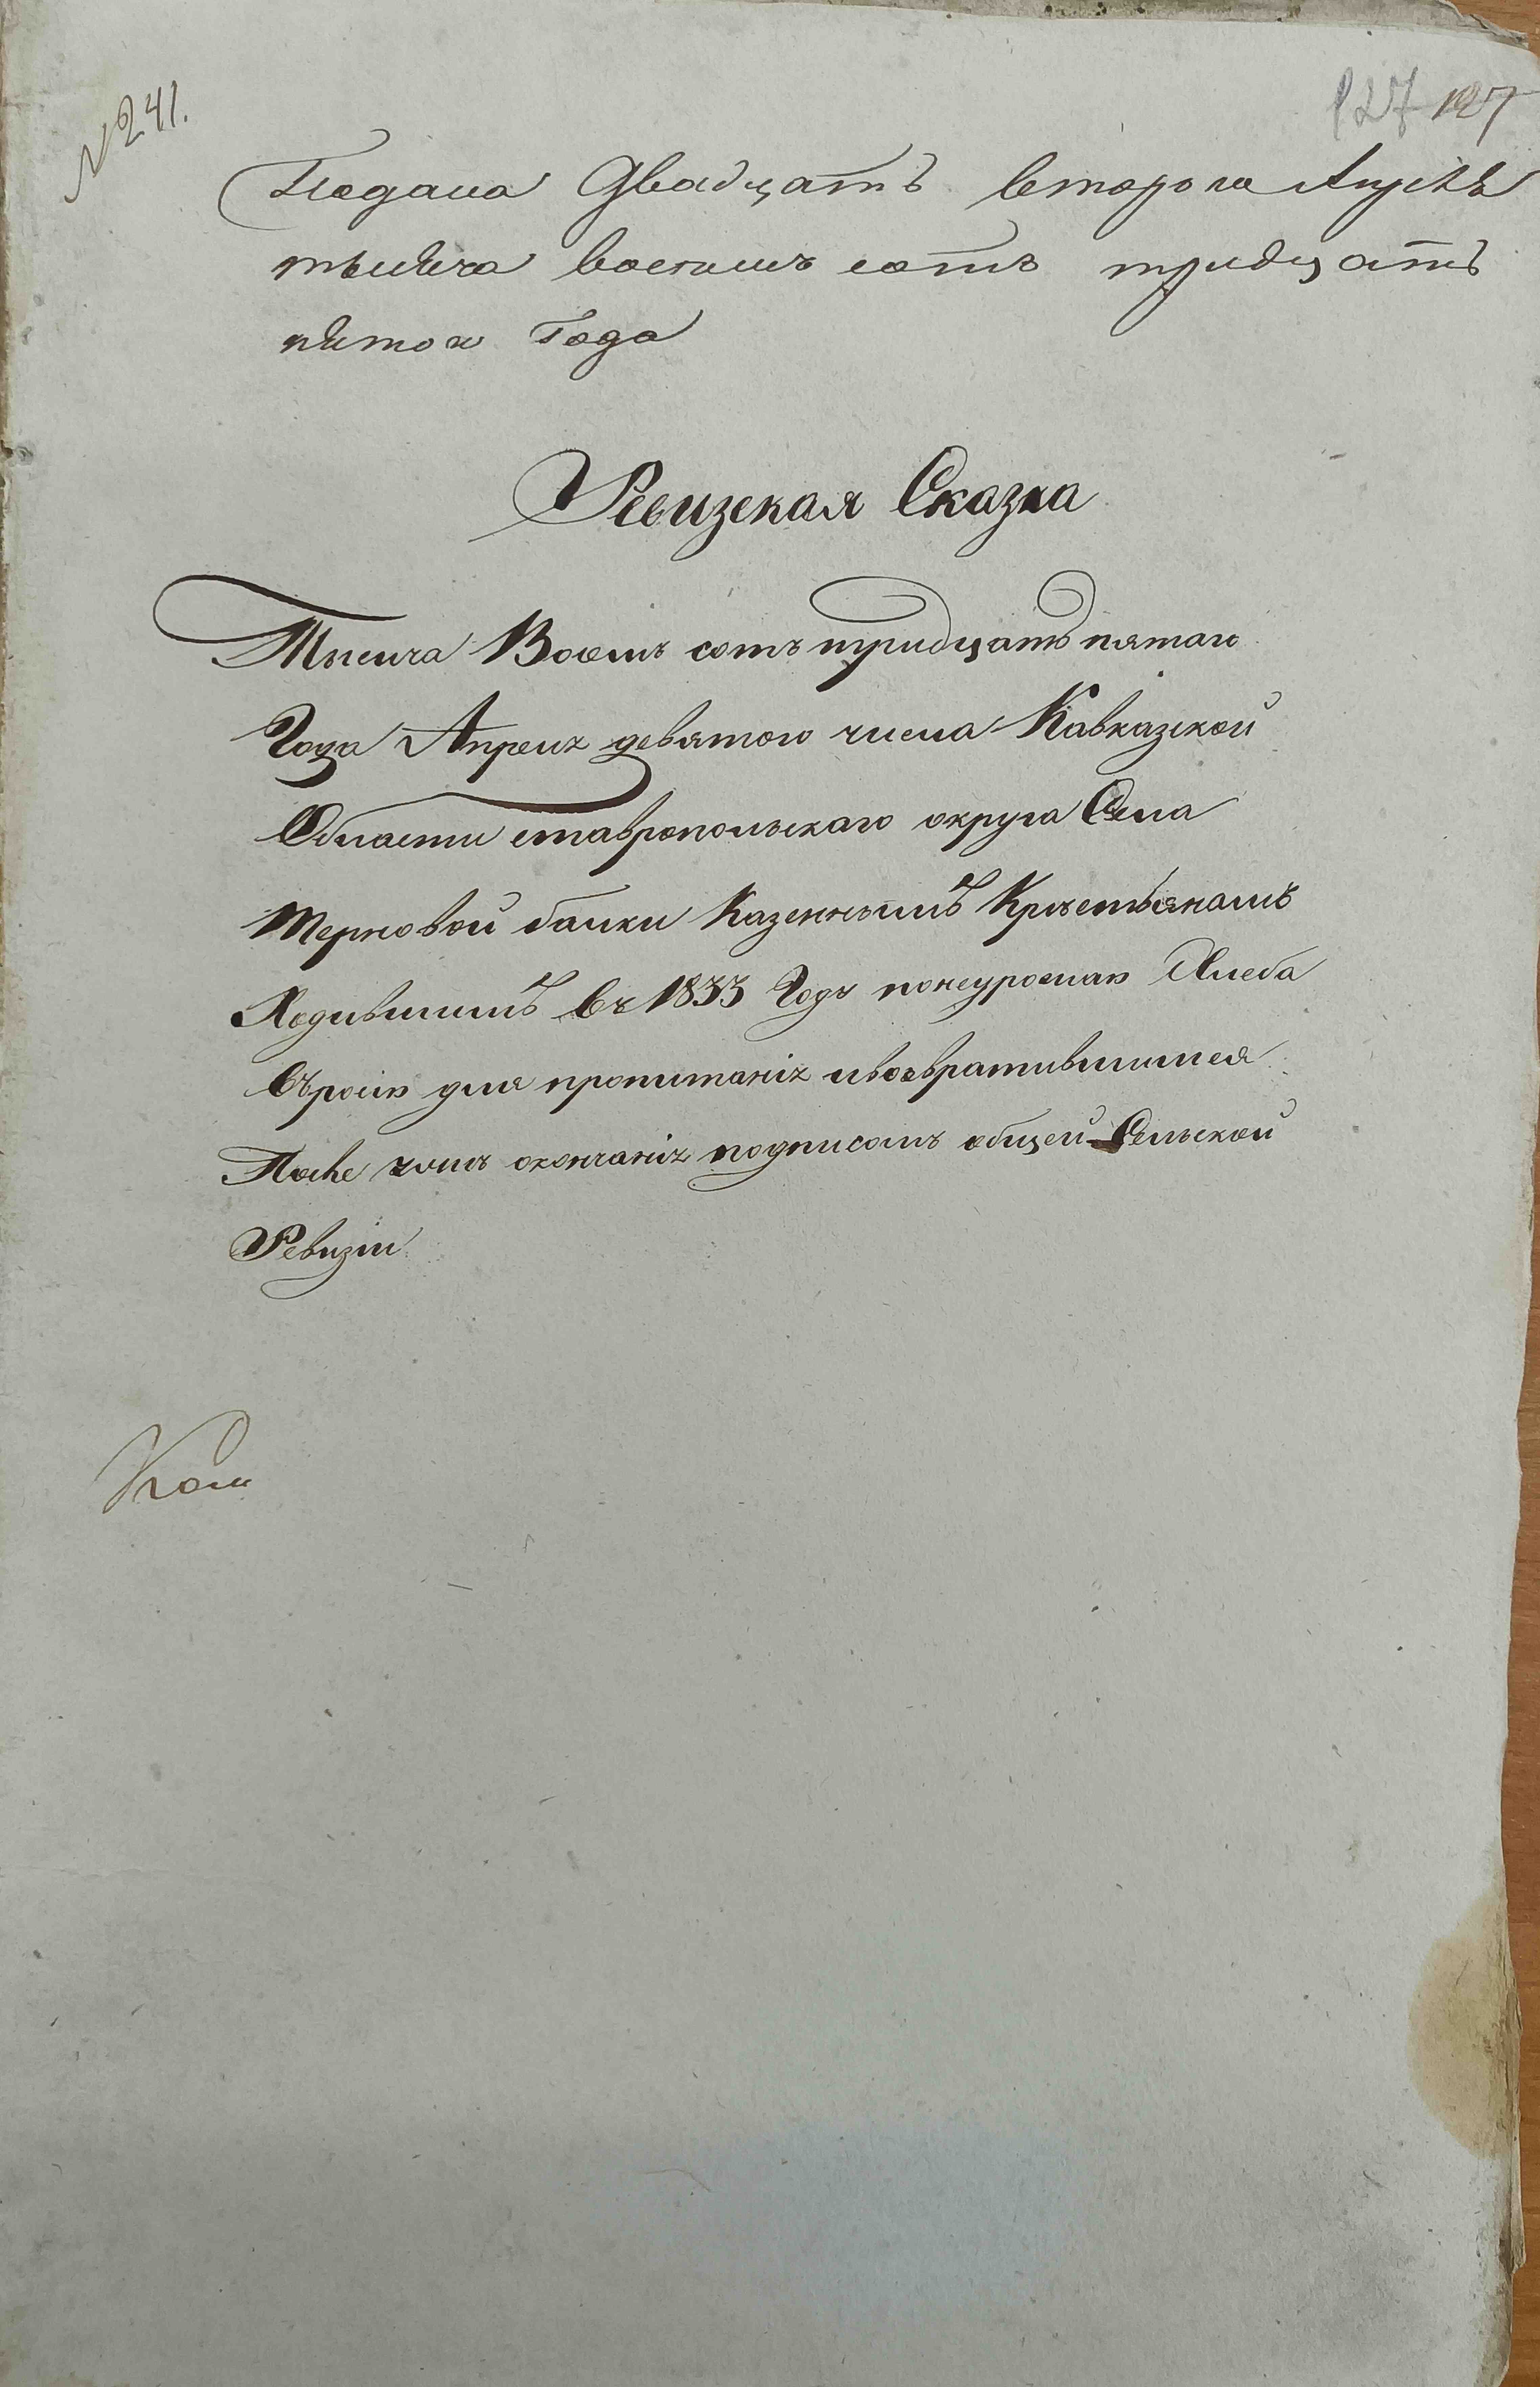 № 241.
127 127
Подана Двадцать втораго Апреля
тысяча восемь сотъ тридцать
пятого Года
Ревизская Сказка
Тысяча Восемь сотъ тридцать пятаго
Года Апреля девятого числа Кавказской
Области ставропольскаго округа Села
Терновой балки Казеннымъ Крестьянамъ
Ходившимъ въ 1833 Годъ понеурожаю Хлеба
вроссію для пропитанія ивозвратившимся
После окончанія подписомъ общей Сельской
Ревизіи